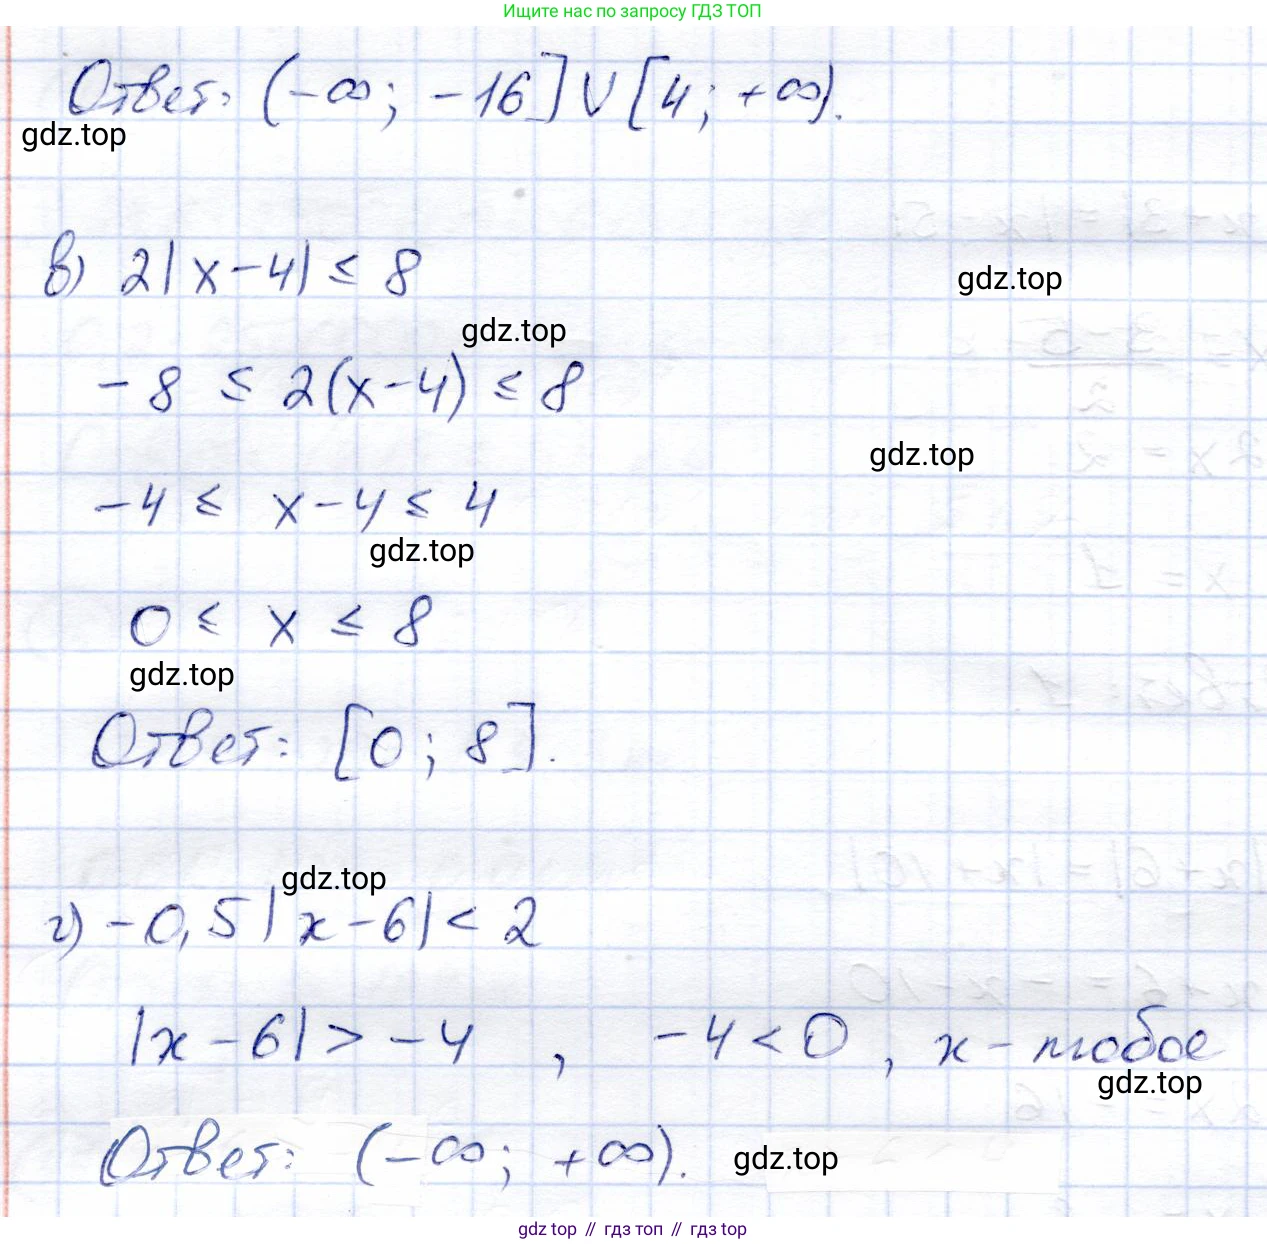 Ищите нас по запросу ГДЗ ТОП
Ответ: (-∞; -16] ∪ [4; +∞).
gdz.top
в) 2|x-4| ≤ 8
gdz.top
gdz.top
-8 ≤ 2(x-4) ≤ 8
gdz.top
-4 ≤ x-4 ≤ 4
gdz.top
0 ≤ x ≤ 8
gdz.top
Ответ: [0; 8].
gdz.top
г) -0,5|x-6| < 2
|x-6| > -4, -4 < 0, x - любое
gdz.top
Ответ: (-∞; +∞).
gdz.top
gdz top // гдз топ // гдз top